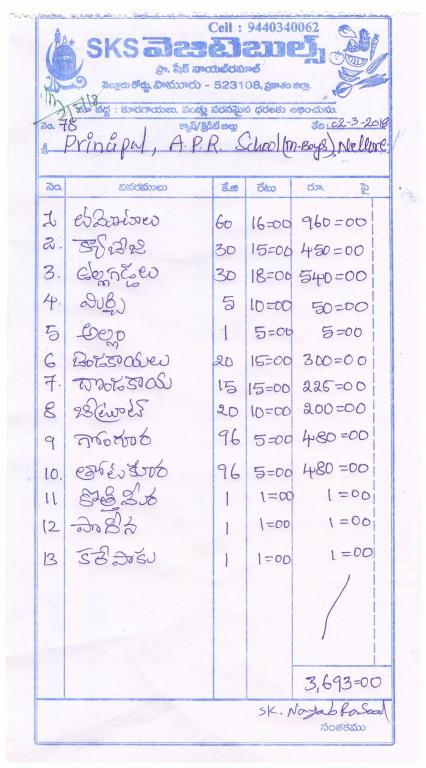 Cell : 9440340062
SKS వెజిటెబుల్స్
ప్రొ. షేక్ నాయబ్‌రసూల్
నెల్లూరు రోడ్డు, పామూరు - 523108, ప్రకాశం జిల్లా.
మా వద్ద : కూరగాయలు, పండ్లు సరసమైన ధరలకు లభించును.
నెం. 78 క్యాష్/క్రెడిట్ బిల్లు తేది : 02-3-2018
శ్రీ Principal, A.P.R. School (m-Boys), Nellore
నెం. వివరములు కే.జి రేటు రూ. పై
1 టమోటాలు 60 16=00 960=00
2. క్యాబేజి 30 15=00 450=00
3. ఉల్లగడ్డలు 30 18=00 540=00
4. మిర్చి 5 10=00 50=00
5 అల్లం 1 5=00 5=00
6 బెండకాయలు 20 15=00 300=00
7. దొండకాయ 15 15=00 225=00
8 బీట్రూట్ 20 10=00 200=00
9 గోంగూర 96 5=00 480=00
10. తోటకూర 96 5=00 480=00
11 కొత్తిమీర 1 1=00 1=00
12 పొదీన 1 1=00 1=00
13 కరేపాకు 1 1=00 1=00
3,693=00
SK. Nayab Rasool
సంతకము